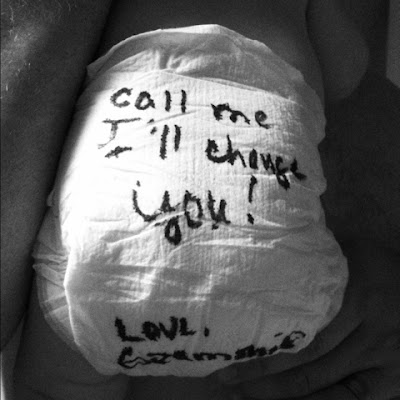 call me
I'll change
you!
LOVE,